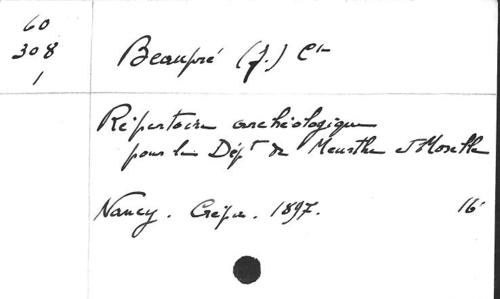 60
308
1
Beaupré (J.) Cte
Répertoire archéologique
pour le Dépt de Meurthe et Moselle
Nancy. Crépin. 1897. 16°